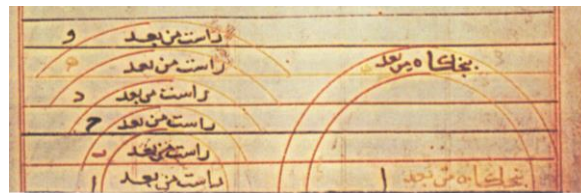 راست من بعد و
راست من بعد ه
راست من بعد د
راست من بعد ح
راست من بعد ب
راست من بعد ا
بنجكاه من بعد
بنجكاه من بعد ا